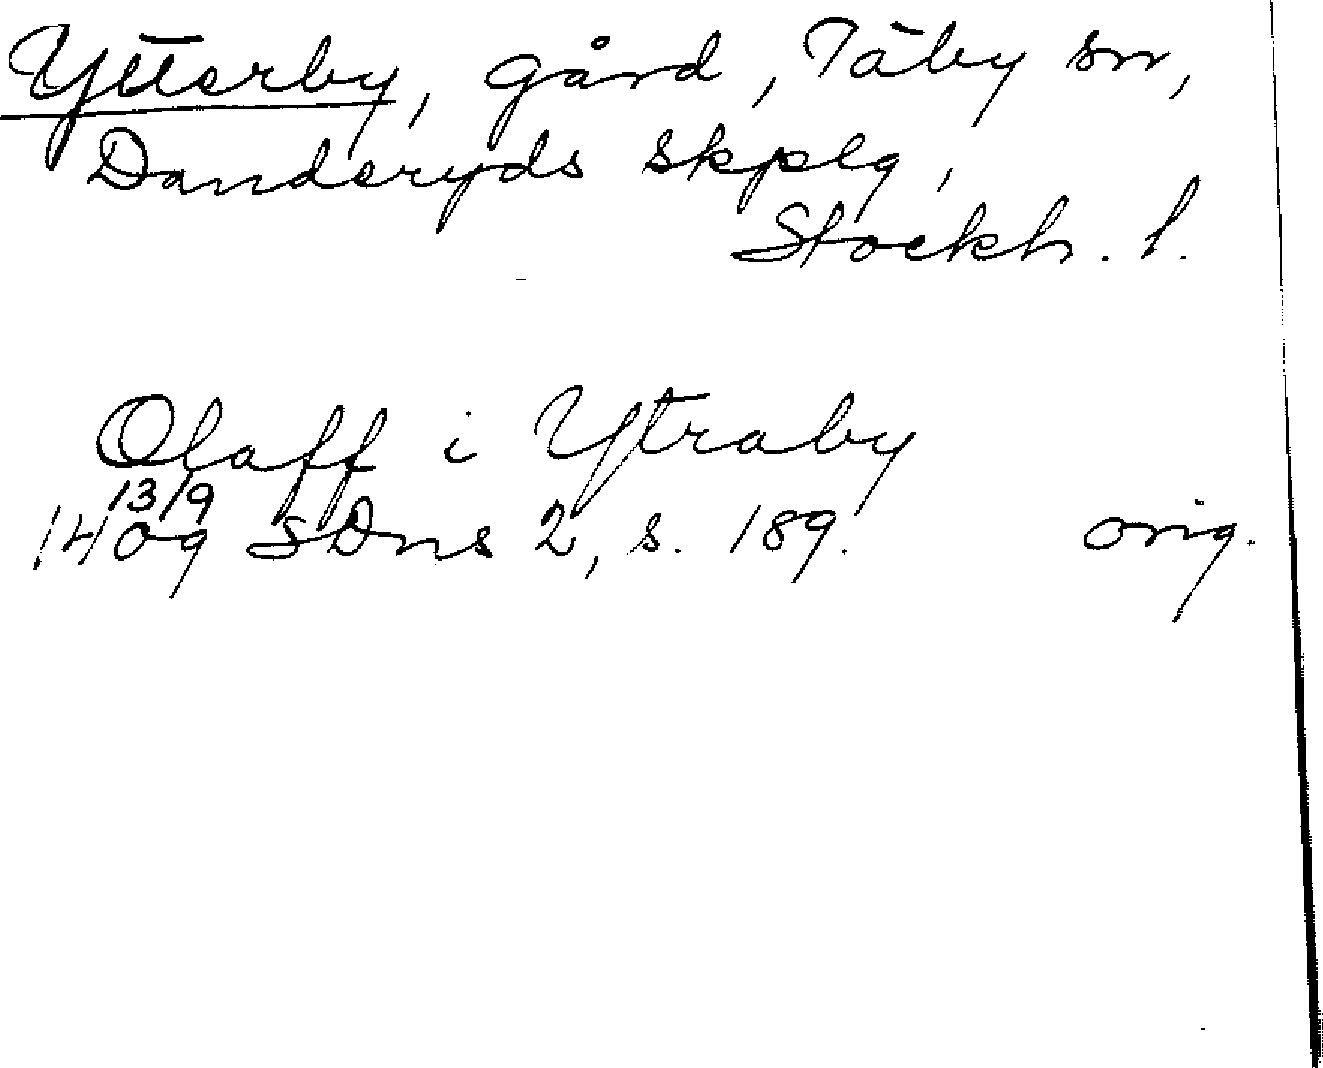 Ytterby, gård, Täby sn,
Danderyds skplg,
Stockh. l.
Olaff i Ytraby
13/9
1409 SDns 2, s. 189. orig.